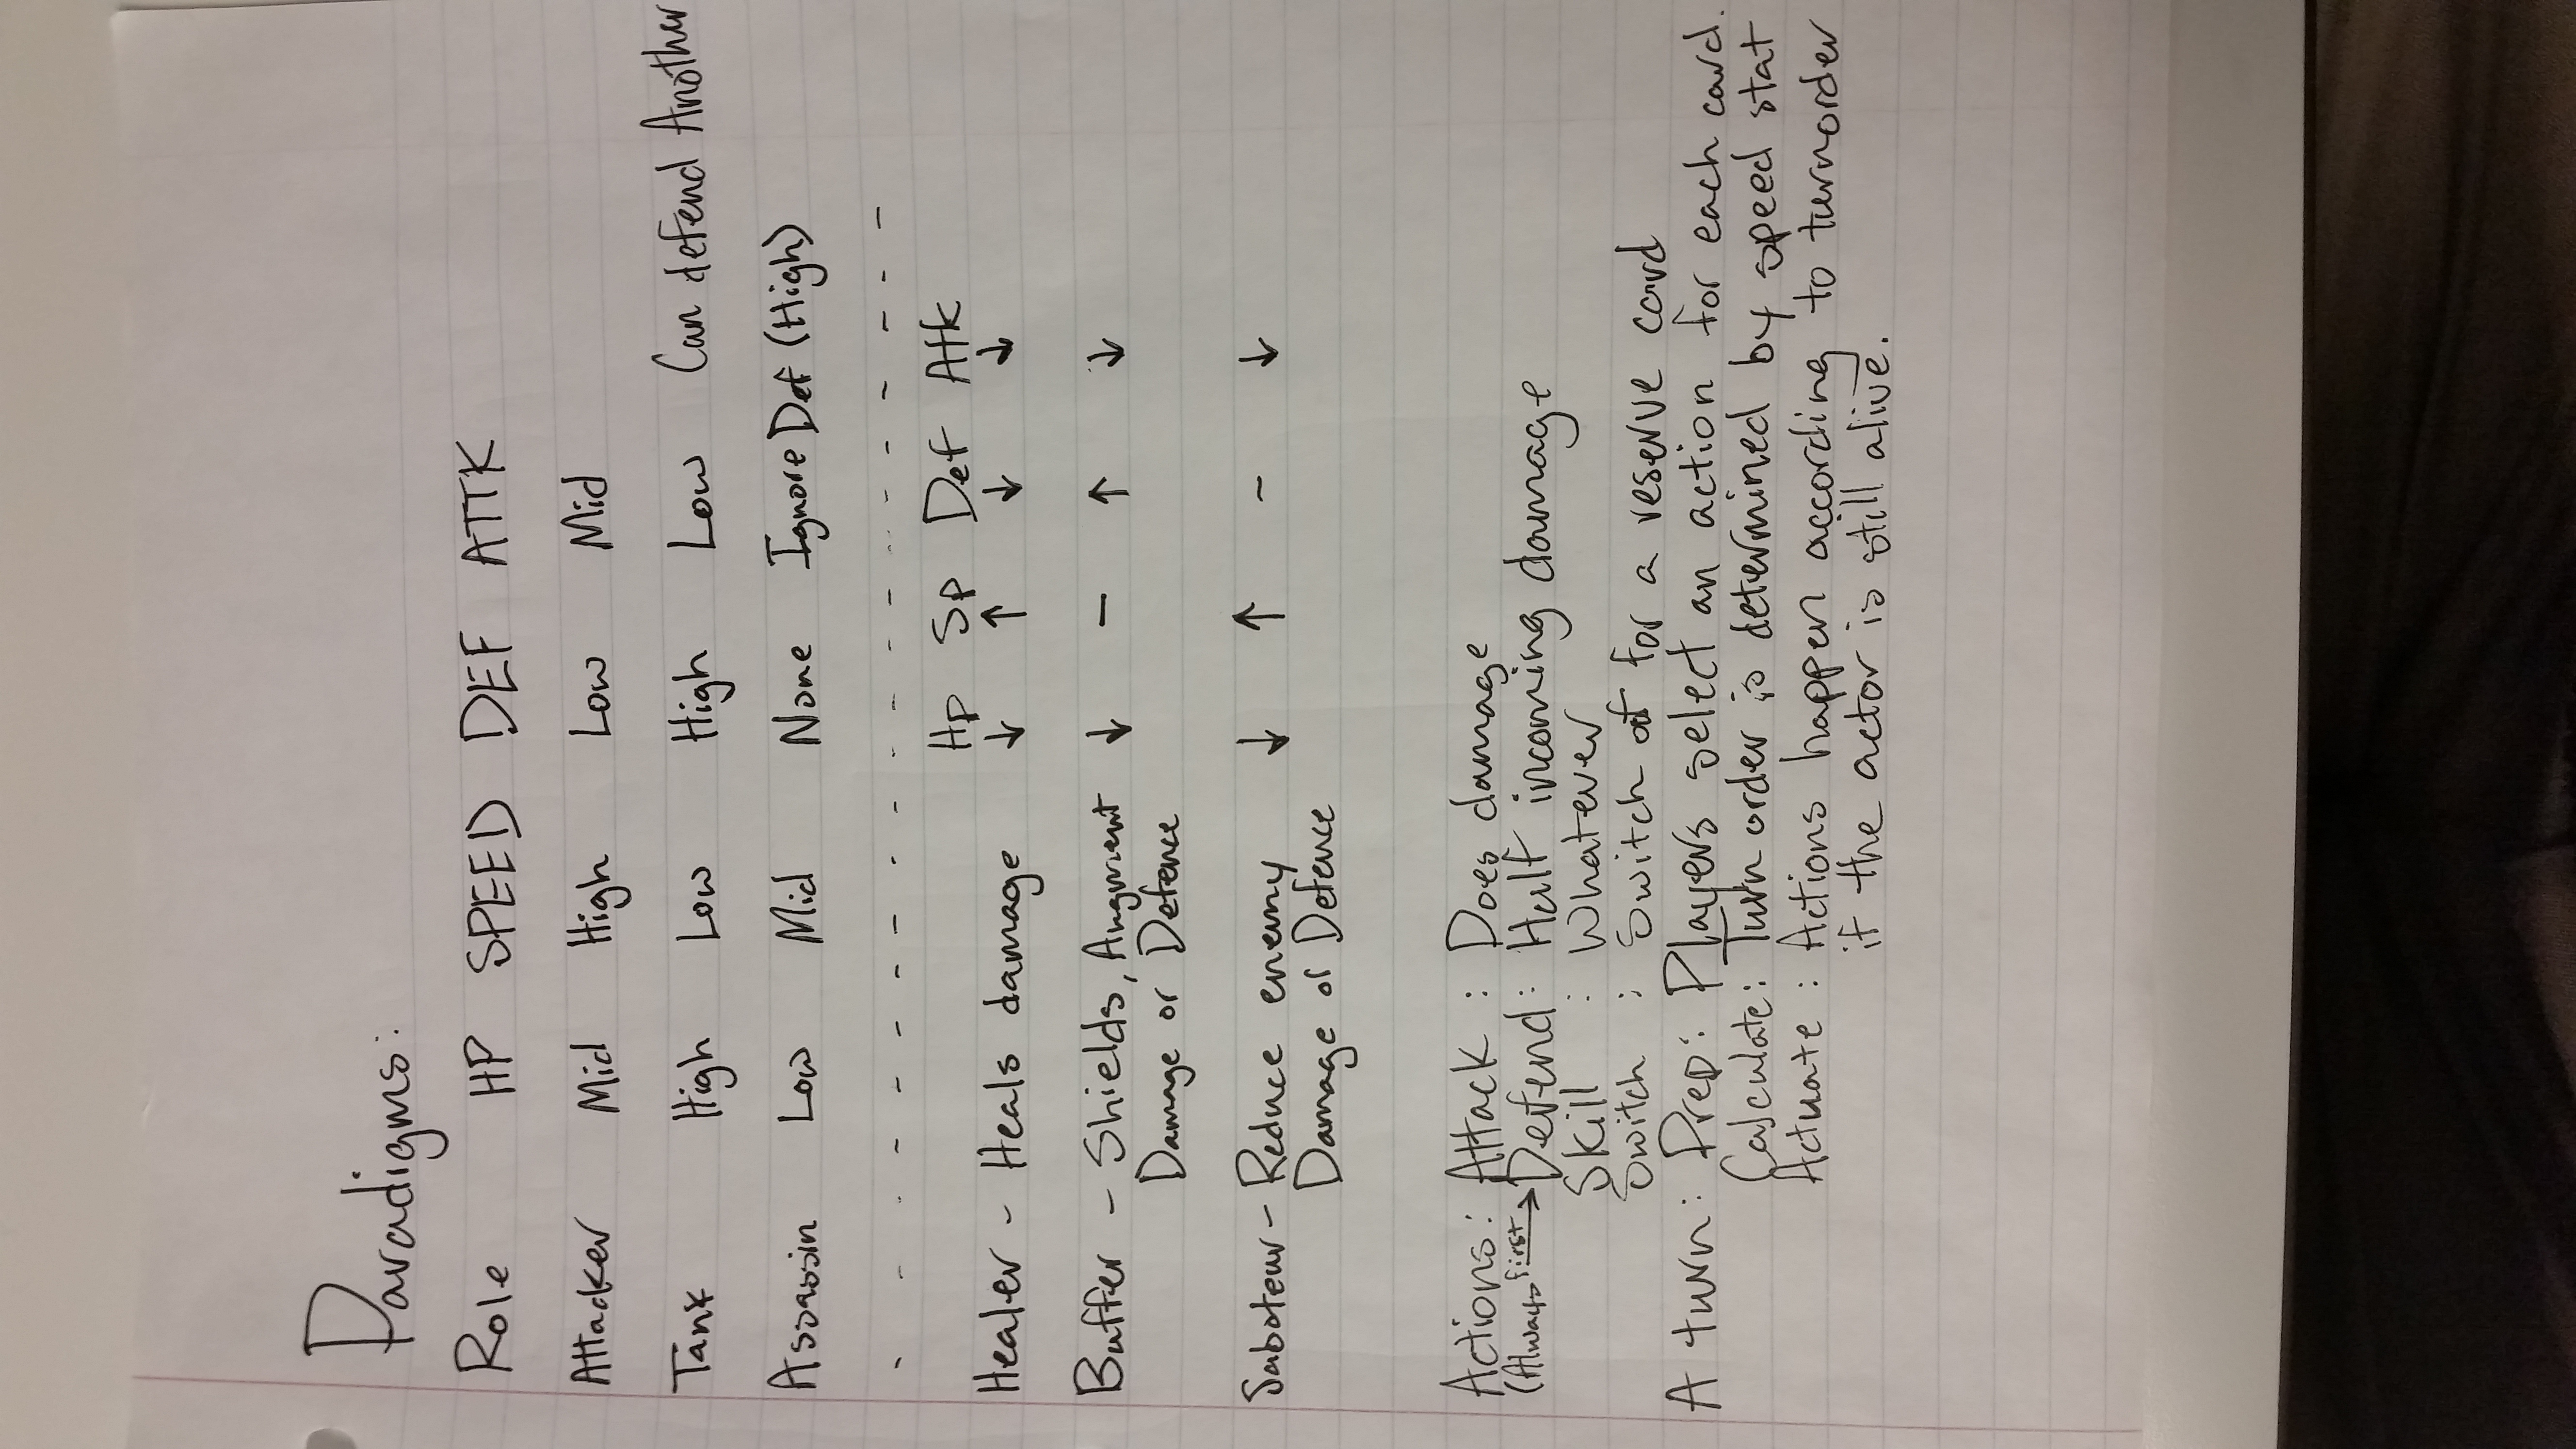 Paradigms:
Role HP SPEED DEF ATTK
Attacker Mid High Low Mid
Tank High Low High Low Can defend Another
Assassin Low Mid None Ignore Def (High)
- - - - - - - - - - - - - - - - - - - - -
Hp Sp Def Atk
Healer - Heals damage ↓ ↑ ↓ ↓
Buffer - Shields, Augment ↓ - ↑ ↓
Damage or Defence
Saboteur - Reduce enemy ↓ ↑ - ↓
Damage or Defence
Actions: Attack : Does damage
(Always first → Defend: Half incoming damage
Skill : Whatever
Switch : Switch for a reserve card
A turn: Prep: Players select an action for each card.
Calculate: Turn order is determined by speed stat
Actuate : Actions happen according to turnorder
if the actor is still alive.